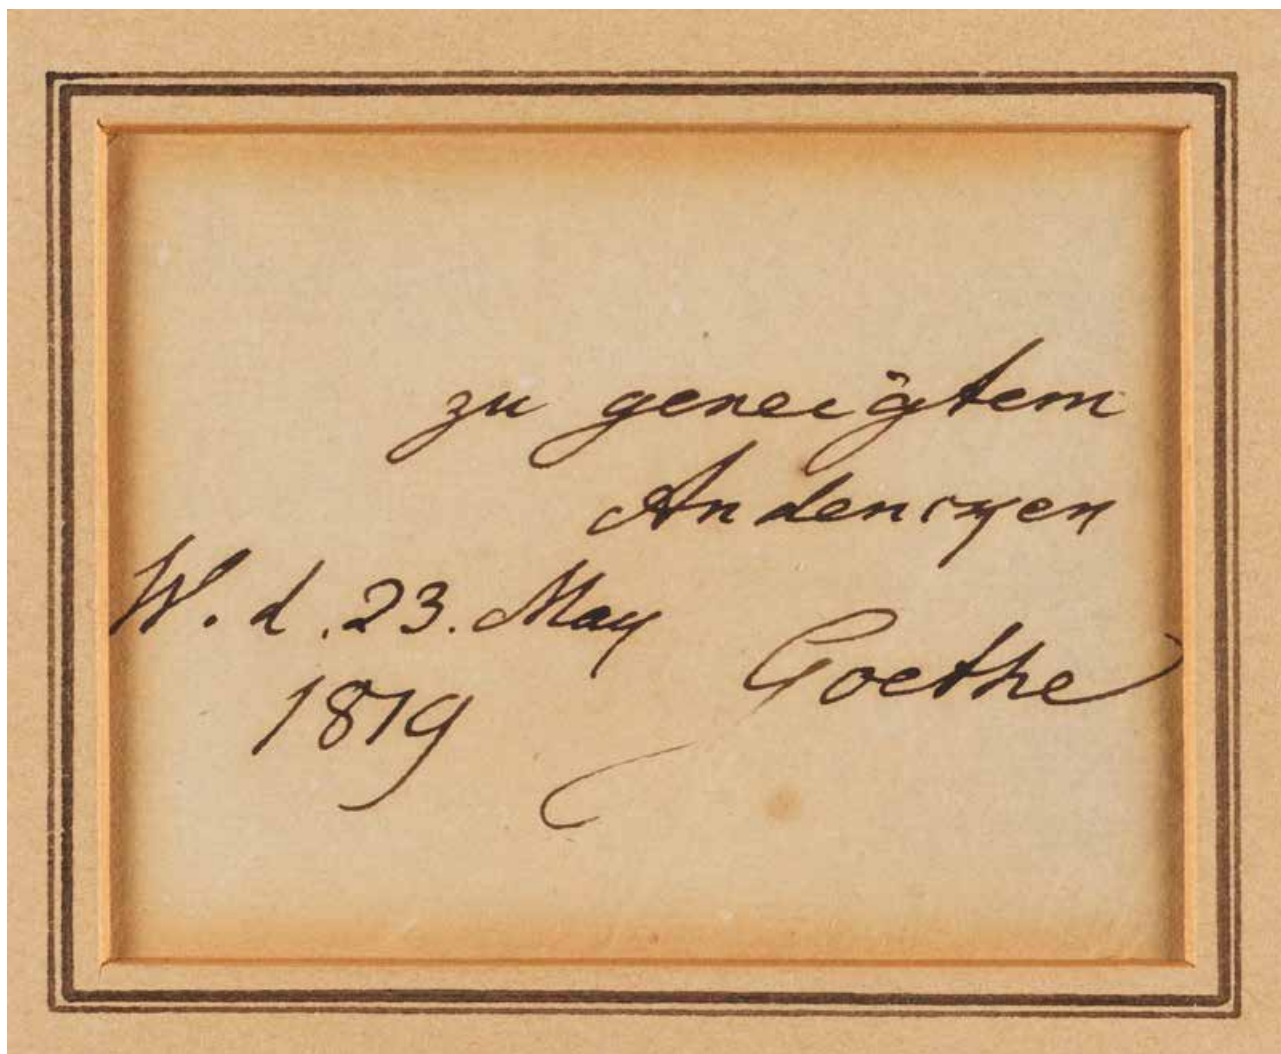 zu geneigtem
Andencken
W. d. 23. May
1819
Goethe